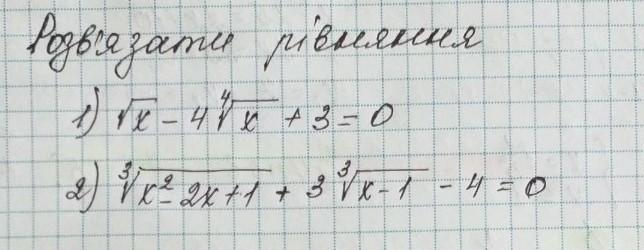 Розв'язати рівняння
1) √x - 4∜x + 3 = 0
2) ∛(x² - 2x + 1) + 3∛(x - 1) - 4 = 0